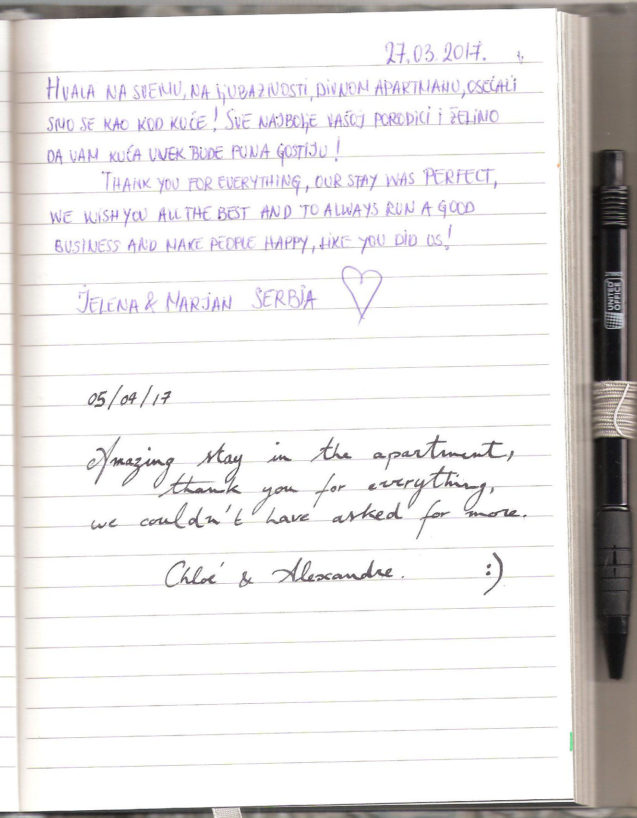 27.03.2017.
HVALA NA SVEMU, NA LJUBAZNOSTI, DIVNOM APARTMANU, OSEĆALI
SMO SE KAO KOD KUĆE! SVE NAJBOLJE VAŠOJ PORODICI I ŽELIMO
DA VAM KUĆA UVEK BUDE PUNA GOSTIJU!
THANK YOU FOR EVERYTHING, OUR STAY WAS PERFECT,
WE WISH YOU ALL THE BEST AND TO ALWAYS RUN A GOOD
BUSINESS AND MAKE PEOPLE HAPPY, LIKE YOU DID US!
JELENA & MARJAN SERBIA ♡
05/04/17
Amazing stay in the apartment,
thank you for everything,
we couldn't have asked for more.
Chloé & Alexandre. :)
UNITED
OFFICE